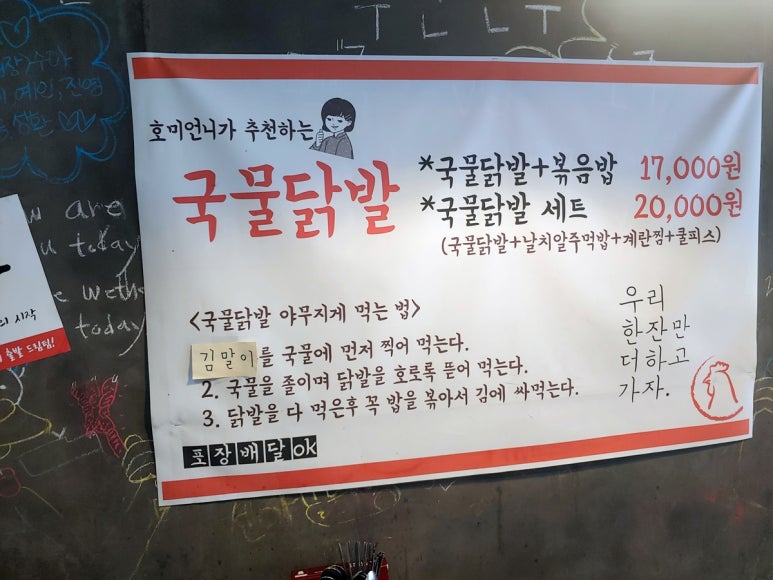 호미언니가 추천하는
국물닭발
*국물닭발+볶음밥 17,000원
*국물닭발 세트 20,000원
(국물닭발+날치알주먹밥+계란찜+쿨피스)
<국물닭발 야무지게 먹는 법>
김말이를 국물에 먼저 찍어 먹는다.
2. 국물을 졸이며 닭발을 호로록 뜯어 먹는다.
3. 닭발을 다 먹은후 꼭 밥을 볶아서 김에 싸먹는다.
포장배달ok
우리
한잔만
더하고
가자.
are
today
today
의 시작
출발 드림팀!